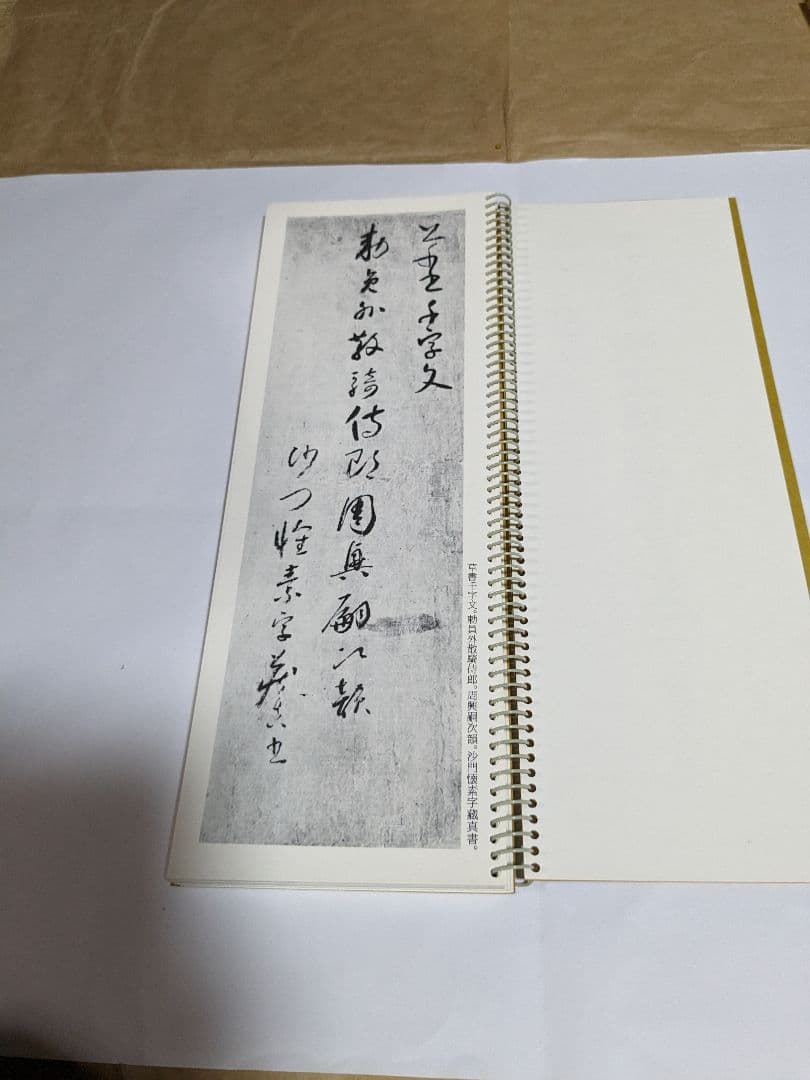 草書千字文。勅員外散騎侍郎。周興嗣次韻。沙門懐素字蔵真書。
草書千字文
勅員外散騎侍郎周興嗣次韻
沙門懐素字蔵真書